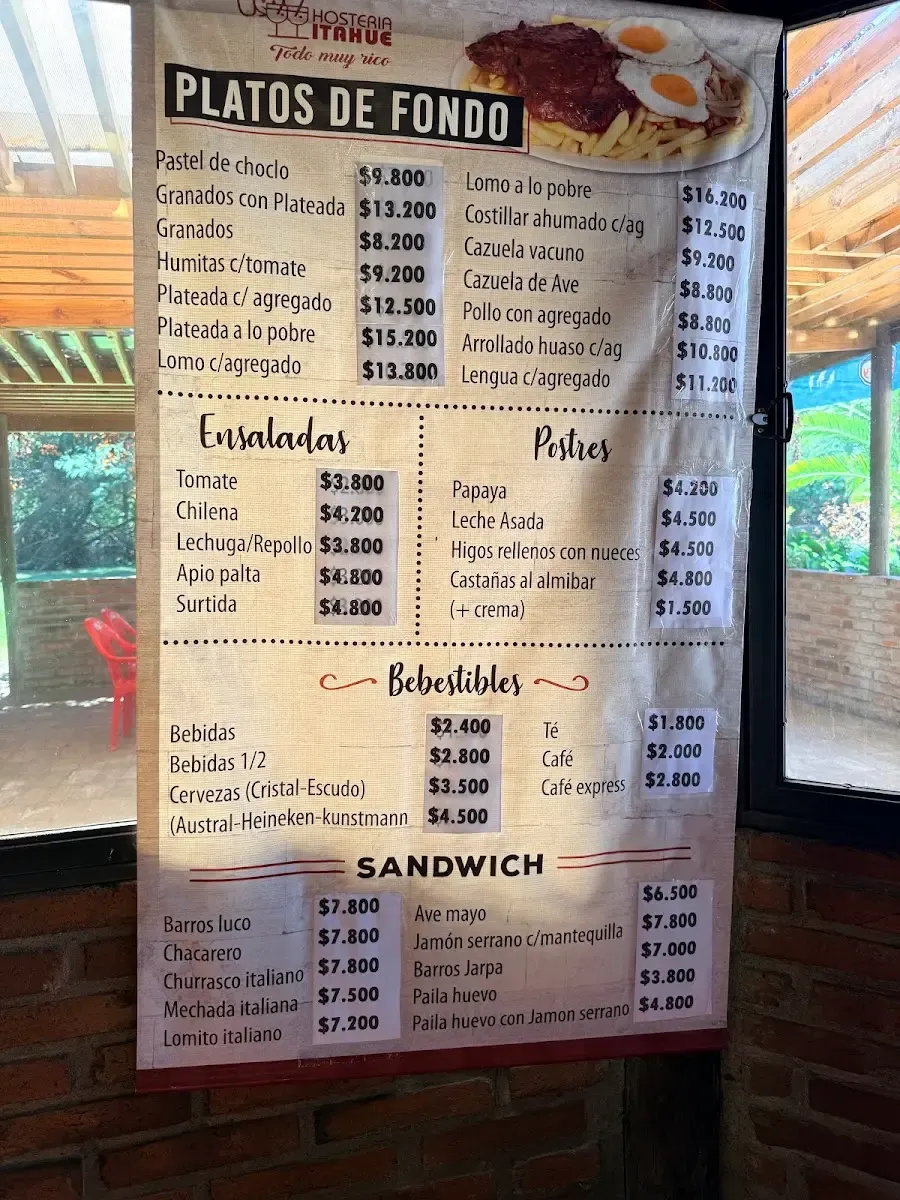 HOSTERIA
ITAHUE
Todo muy rico
PLATOS DE FONDO
Pastel de choclo $9.800
Granados con Plateada $13.200
Granados $8.200
Humitas c/tomate $9.200
Plateada c/ agregado $12.500
Plateada a lo pobre $15.200
Lomo c/agregado $13.800
Lomo a lo pobre $16.200
Costillar ahumado c/ag $12.500
Cazuela vacuno $9.200
Cazuela de Ave $8.800
Pollo con agregado $8.800
Arrollado huaso c/ag $10.800
Lengua c/agregado $11.200
Ensaladas
Tomate $3.800
Chilena $4.200
Lechuga/Repollo $3.800
Apio palta $4.800
Surtida $4.800
Postres
Papaya $4.200
Leche Asada $4.500
Higos rellenos con nueces $4.500
Castañas al almibar $4.800
(+ crema) $1.500
Bebestibles
Bebidas $2.400
Bebidas 1/2 $2.800
Cervezas (Cristal-Escudo) $3.500
(Austral-Heineken-kunstmann $4.500
Té $1.800
Café $2.000
Café express $2.800
SANDWICH
Barros luco $7.800
Chacarero $7.800
Churrasco italiano $7.800
Mechada italiana $7.500
Lomito italiano $7.200
Ave mayo $6.500
Jamón serrano c/mantequilla $7.800
Barros Jarpa $7.000
Paila huevo $3.800
Paila huevo con Jamon serrano $4.800